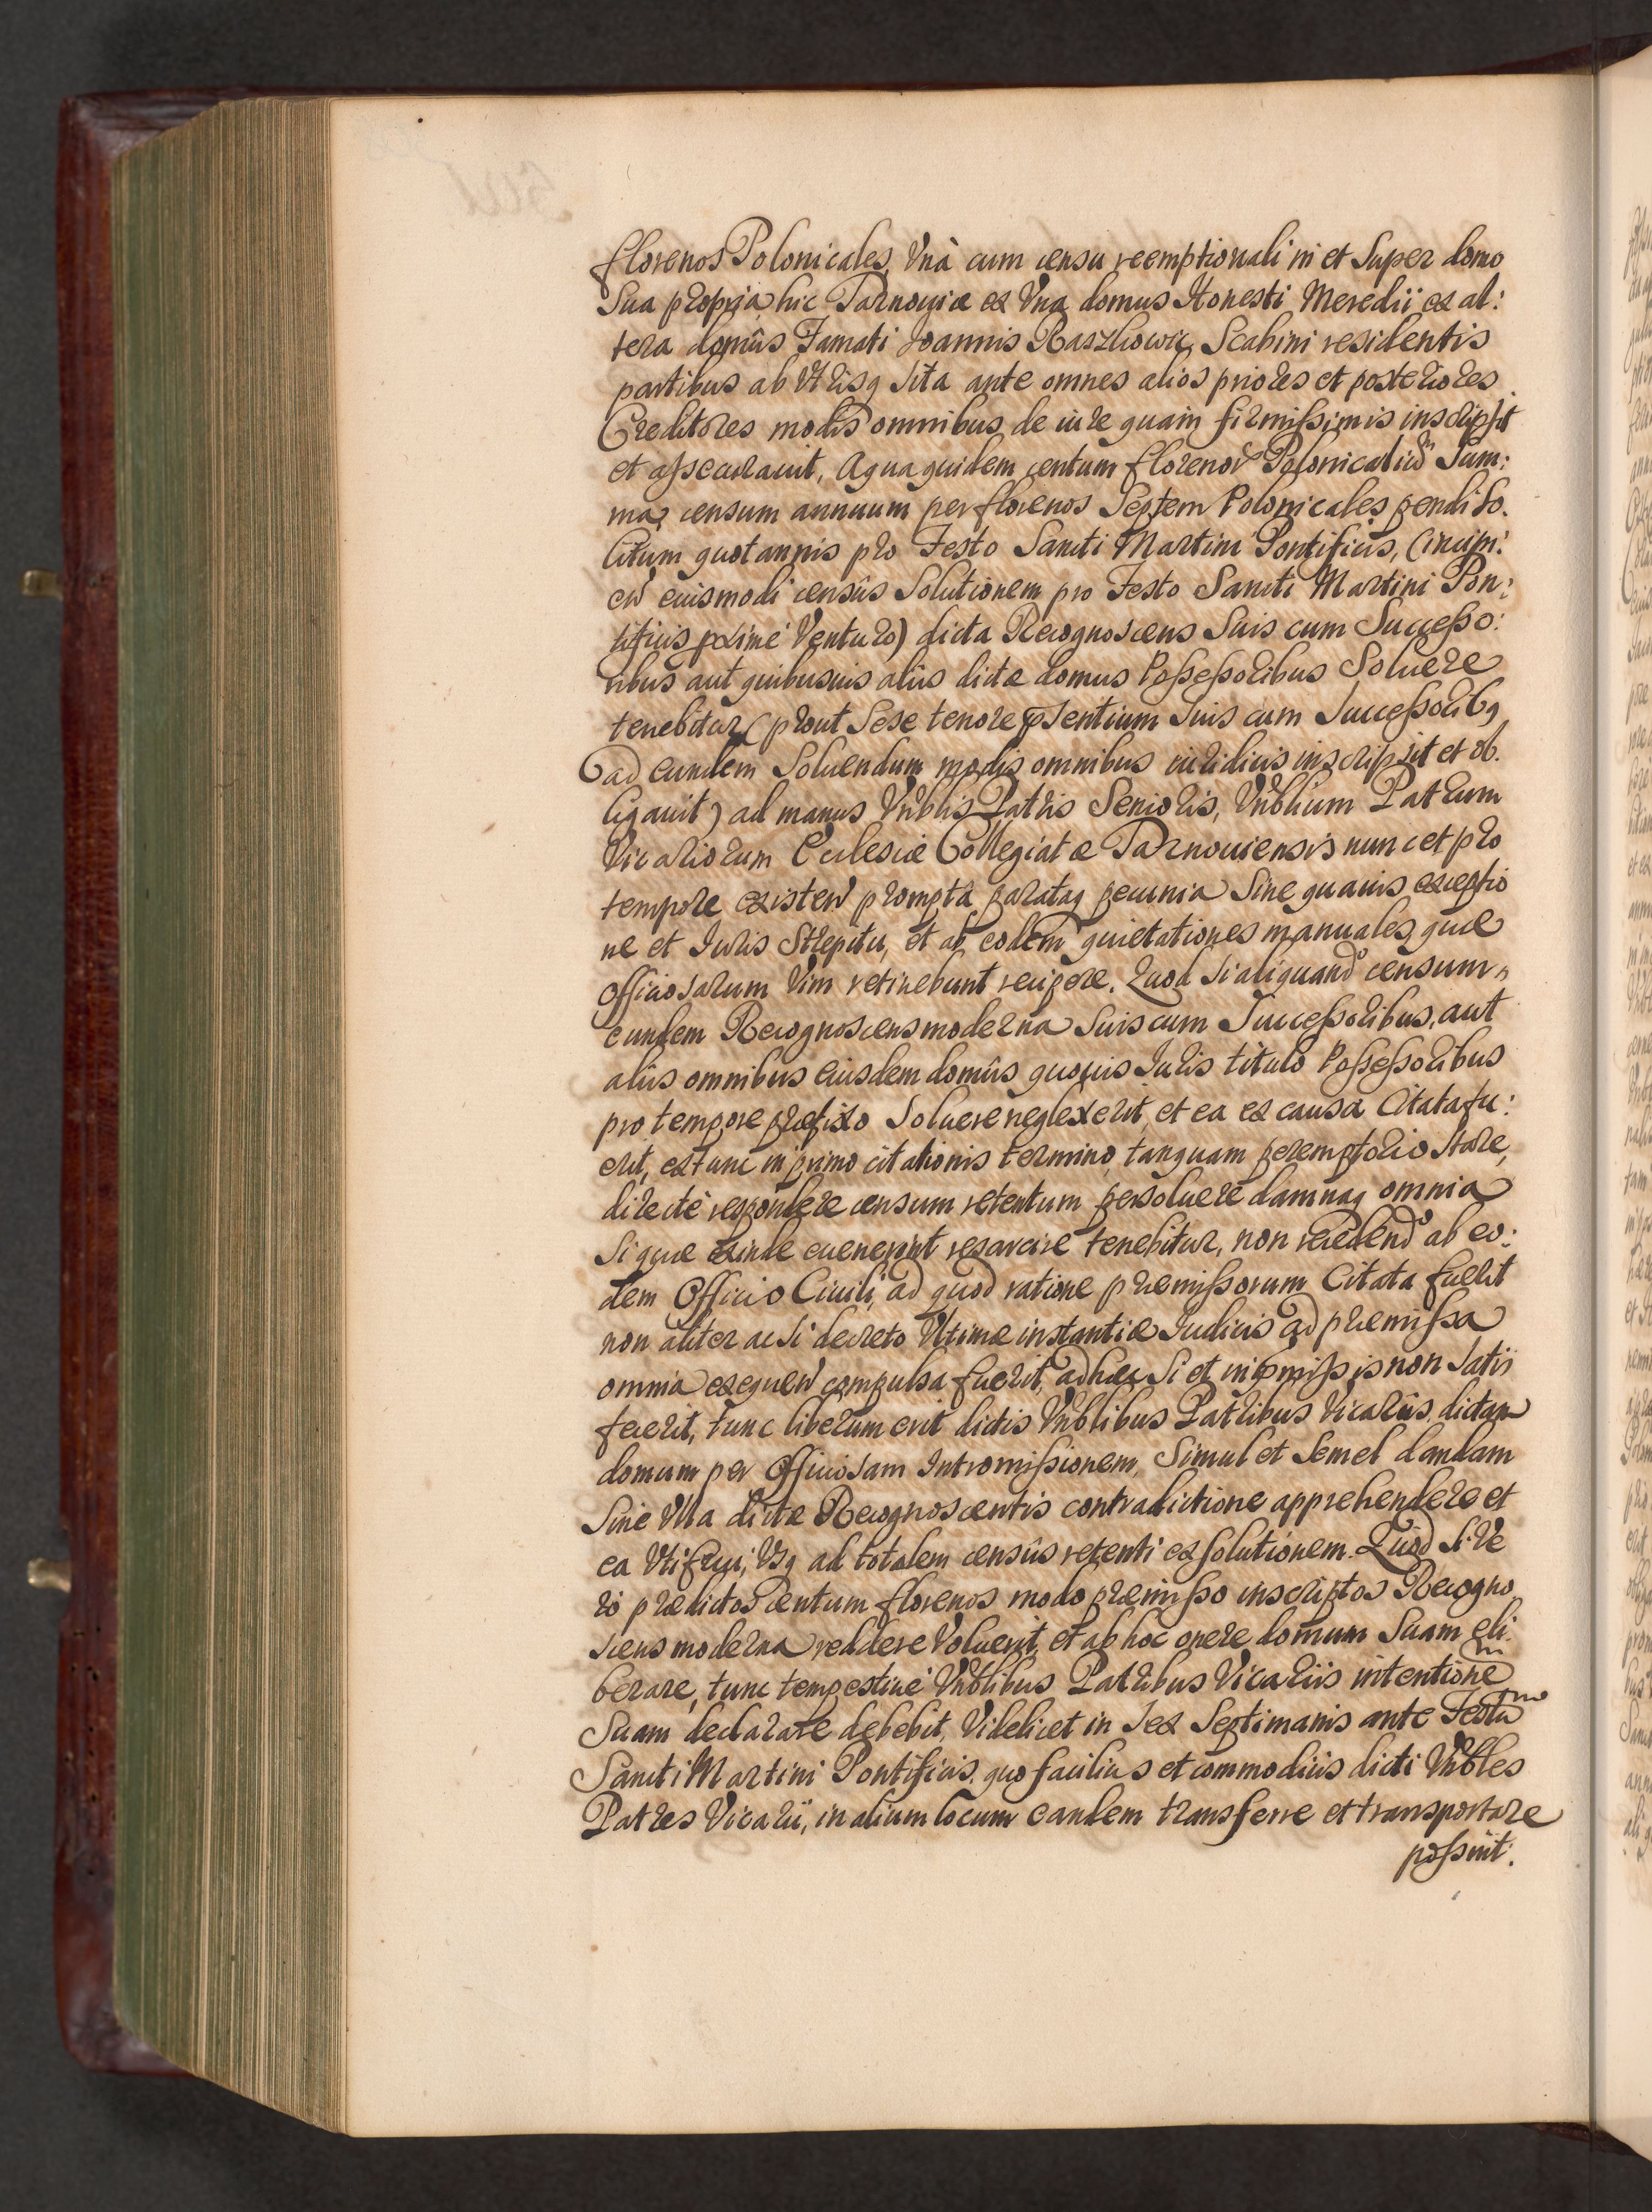 florenos Polonicales, Vnà cum censu reemptionali in et Super domo
Sua propria hic Tarnoviæ ex Vna domus Honesti Meredii ex al:
tera domûs Famati Joannis Raszkowic, Scabini residentis
partibus ab Vtrisq sita ante omnes alios priores et posteriores
Creditores modis omnibus de iure quam firmissimis inscripsit
et assecurauit, A qua quidem centum florenor Polonicaliū Sum:
ma, censum annuum per florenos Septem Polonicales pendi so.
litum quotannis pro Festo Sancti Martini Pontificis, (incipi:
en eiusmodi censûs Solutionem pro Festo Sancti Martini Pon:
tificis pxime Venturo) dicta Recognoscens Suis cum Successo:
ribus aut quibusuis aliis dictæ domus Possessoribus Soluere
tenebitur (prout Sese tenore pSentium Suis cum Successoribq
ad eundem Soluendum modis omnibus iuridicis inscripsit et ob.
ligauit) ad manus Vnblis Patris Senioris, Vnblium Patrum
Vicariorum Ecclesiæ Collegiatæ Tarnouiensis nunc et pro
tempore existen promptâ parataq pecunia Sine quauis exceptio
ne et Iuris Strepitu, et ab eodem quietationes manuales, quæ
officiosarum Vim retinebunt recipere. Quod si aliquando censum
eundem Recognoscens moderna Suis cum Successoribus, aut
aliis omnibus eiusdem domûs quouis Iuris titulo Possessoribus
pro tempore præfixo Soluere neglexerit, et ea ex causa Citata fu:
erit, extunc in primo citationis termino, tanquam peremptorio stare,
directè respondere censum retentum persoluere damnaq omnia
Si quæ exinde euenerint resarcire tenebitur, non recedend ab eo:
dem Officio Ciuili, ad quod ratione præmissorum Citata fuerit
non aliter ac si decreto Vltimæ instantiæ Iudicis ad præmissa
omnia exequen compulsa fuerit, adhæc Si et in pmissis non Satis
fecerit, tunc liberum erit dictis Vnblibus Patribus Vicariis, dictam
domum per Officiosam Intromissionem, Simul et Semel dandam
Sine Vlla dictæ Recognoscentis contradictione apprehendere et
ea Vti frui, Vsq ad totalem censûs retenti exsolutionem. Quod Si Ve
rò prædictos centum florenos modo præmisso inscriptos Recogno
scens moderna reddere Voluerit, et ab hoc onere domum Suam eli.
berare, tunc tempestiue Vnblibus Patribus Vicariis intentionē
Suam declarare debebit, Videlicet in Sex Septimanis ante Festū
Sancti Martini Pontificis, quo facilius et commodiùs dicti Vnbles
Patres Vicarii, in alium locum eandem transferre et transportare
possint.